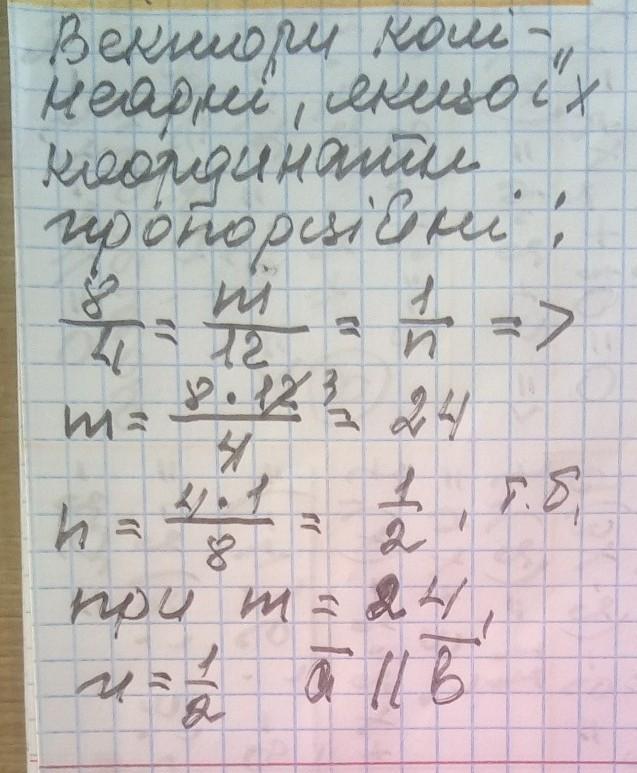 Вектори колі-
неарні, якщо їх
координати
пропорційні:
8/4 = m/12 = 1/n =>
m = 8·12 3/4 = 24
n = 4·1/8 = 1/2, т.б,
при m = 24,
n = 1/2 a̅ || b̅